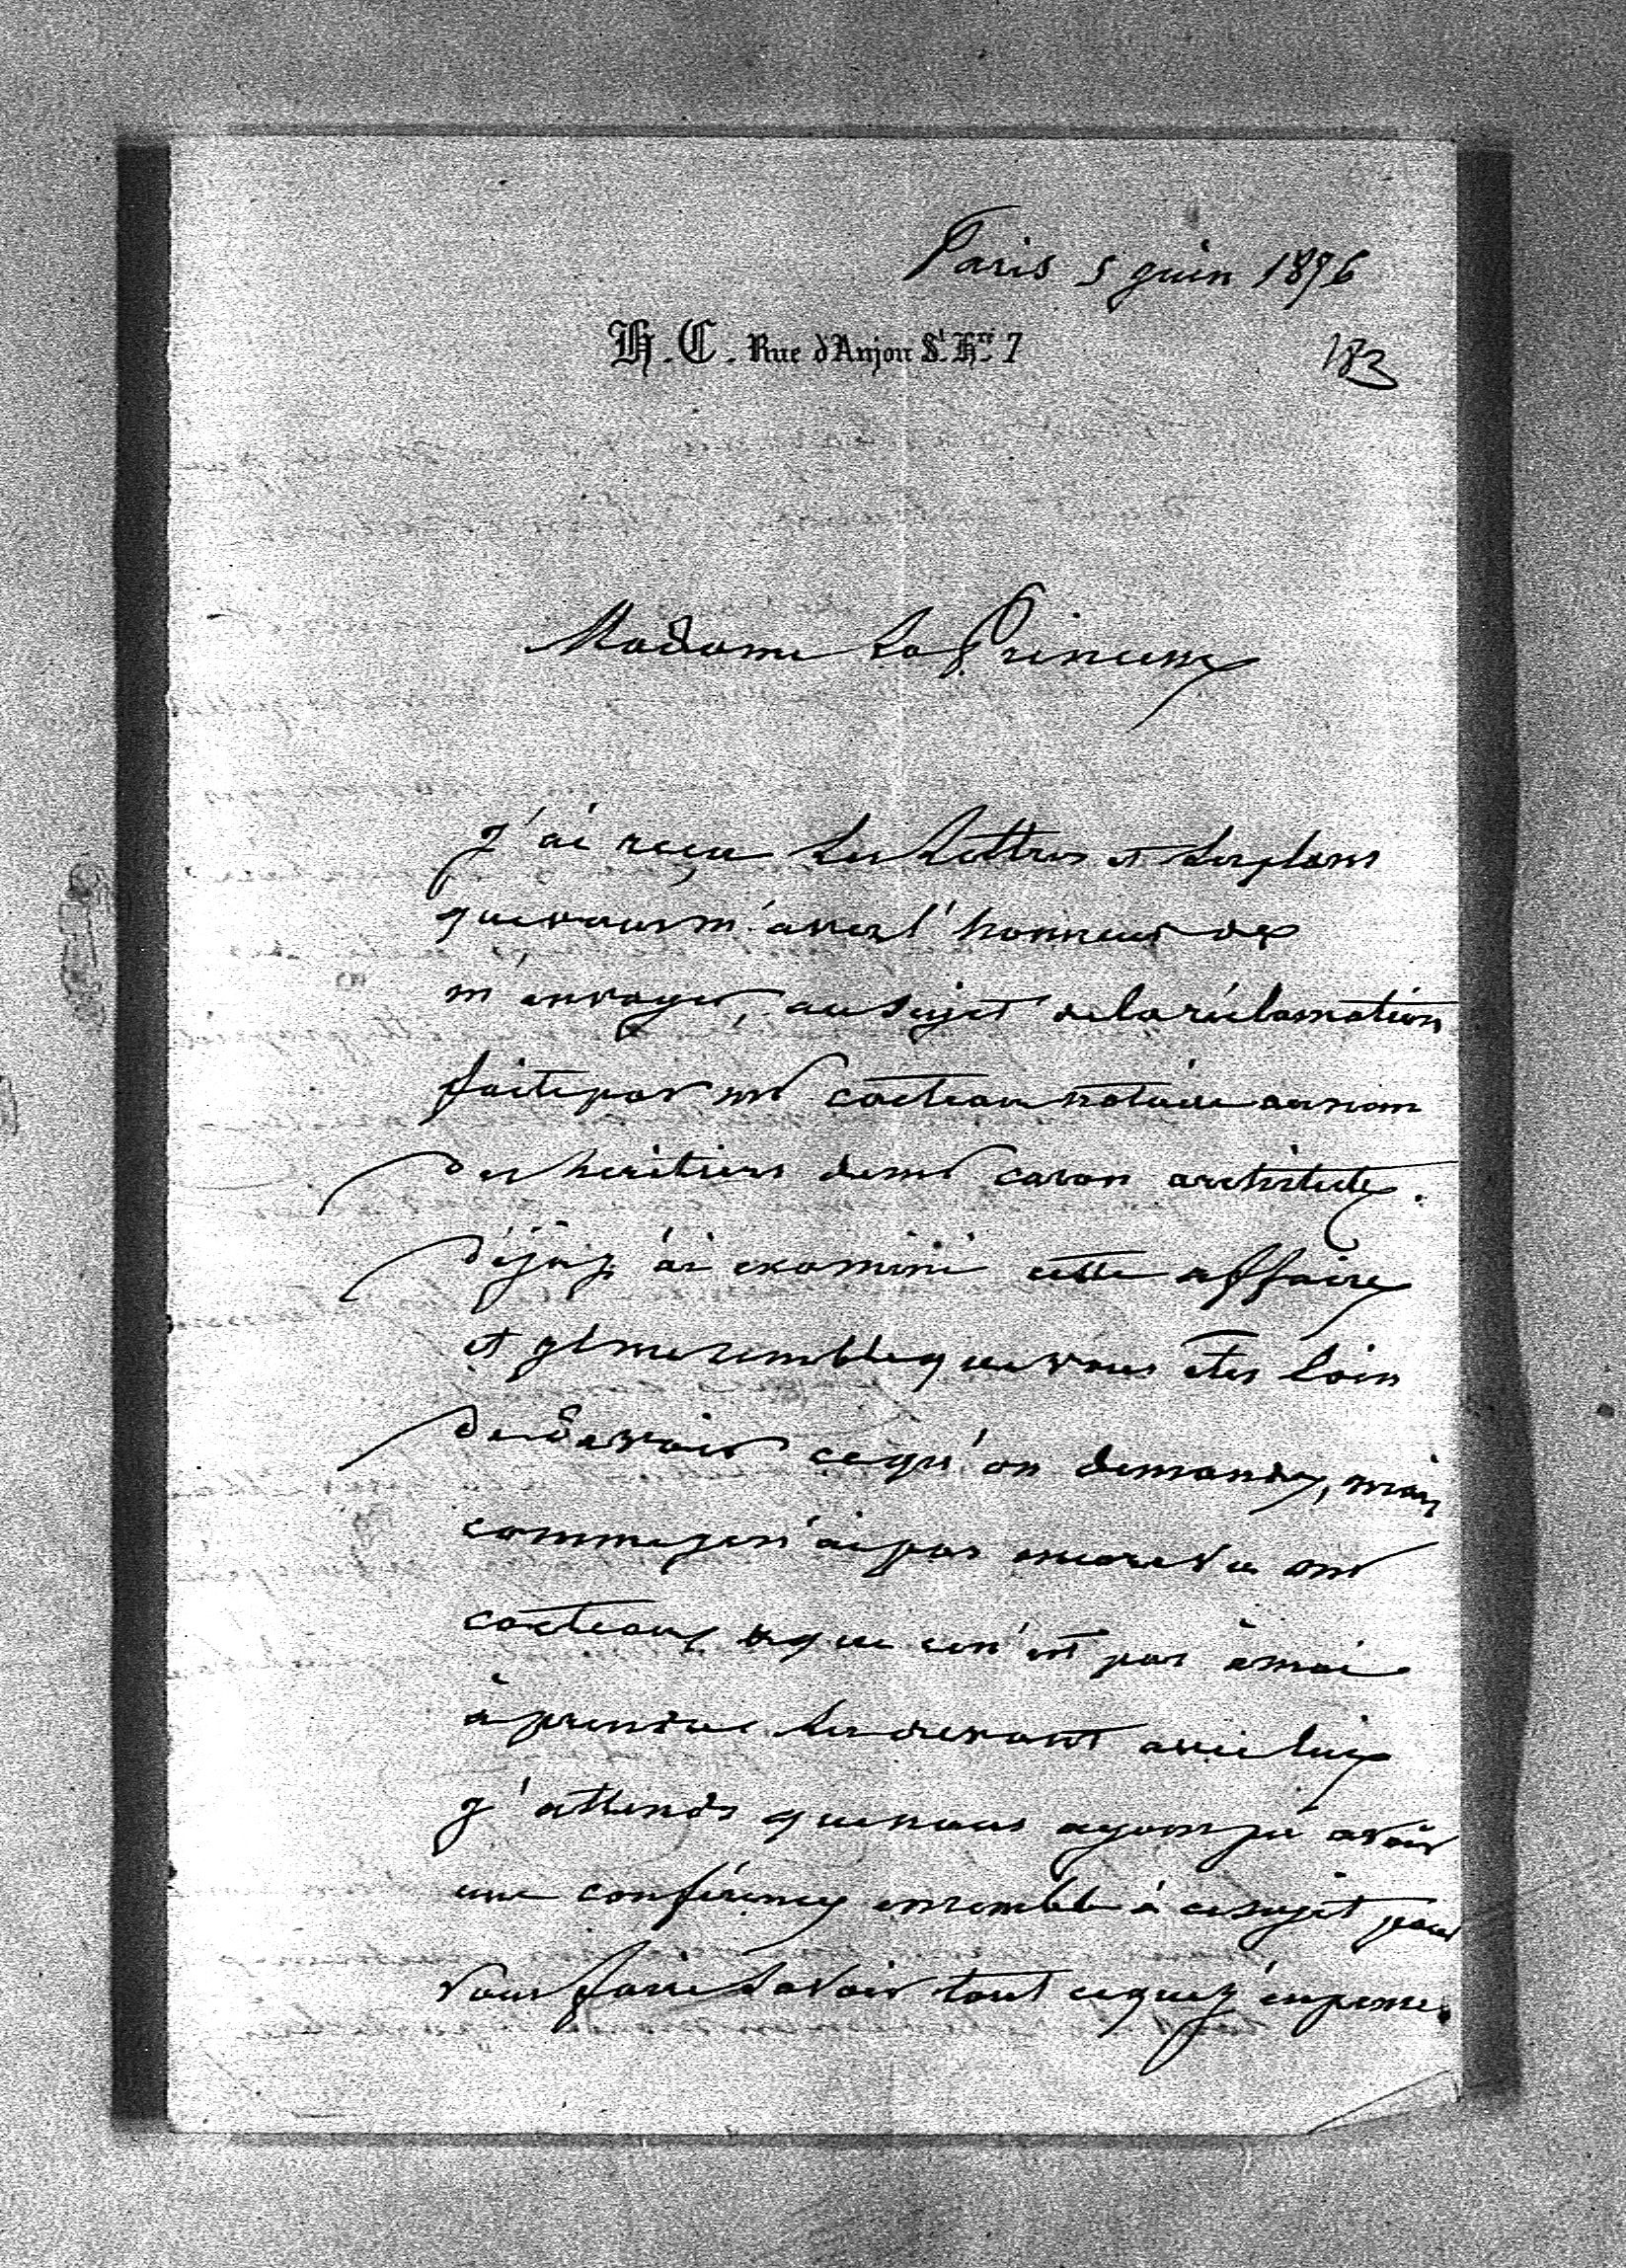 Paris 5 juin 1876
H. C. Rue d'Anjou St. Hré. 7
183
Madame La Princesse
J'ai reçu Les Lettres et Les plans
que vous m'avez l'honneur de
m'envoyer, au sujet de la réclamation
faite par mr cocteau notaire au nom
des heritiers de mr caron architecte.
Déjà j'ai examiné cette affaire
et il me semble que vous êtes loin
de devoir ce qu'on demande, mais
comme je n'ai pas encore vu mr
cocteau, et que ce n'est pas à moi
à prendre les devant avec lui
j'attends que nous ayons pu avoir
une conférence ensemble à ce sujet pour
vous faire savoir tout ce que j'en pense.